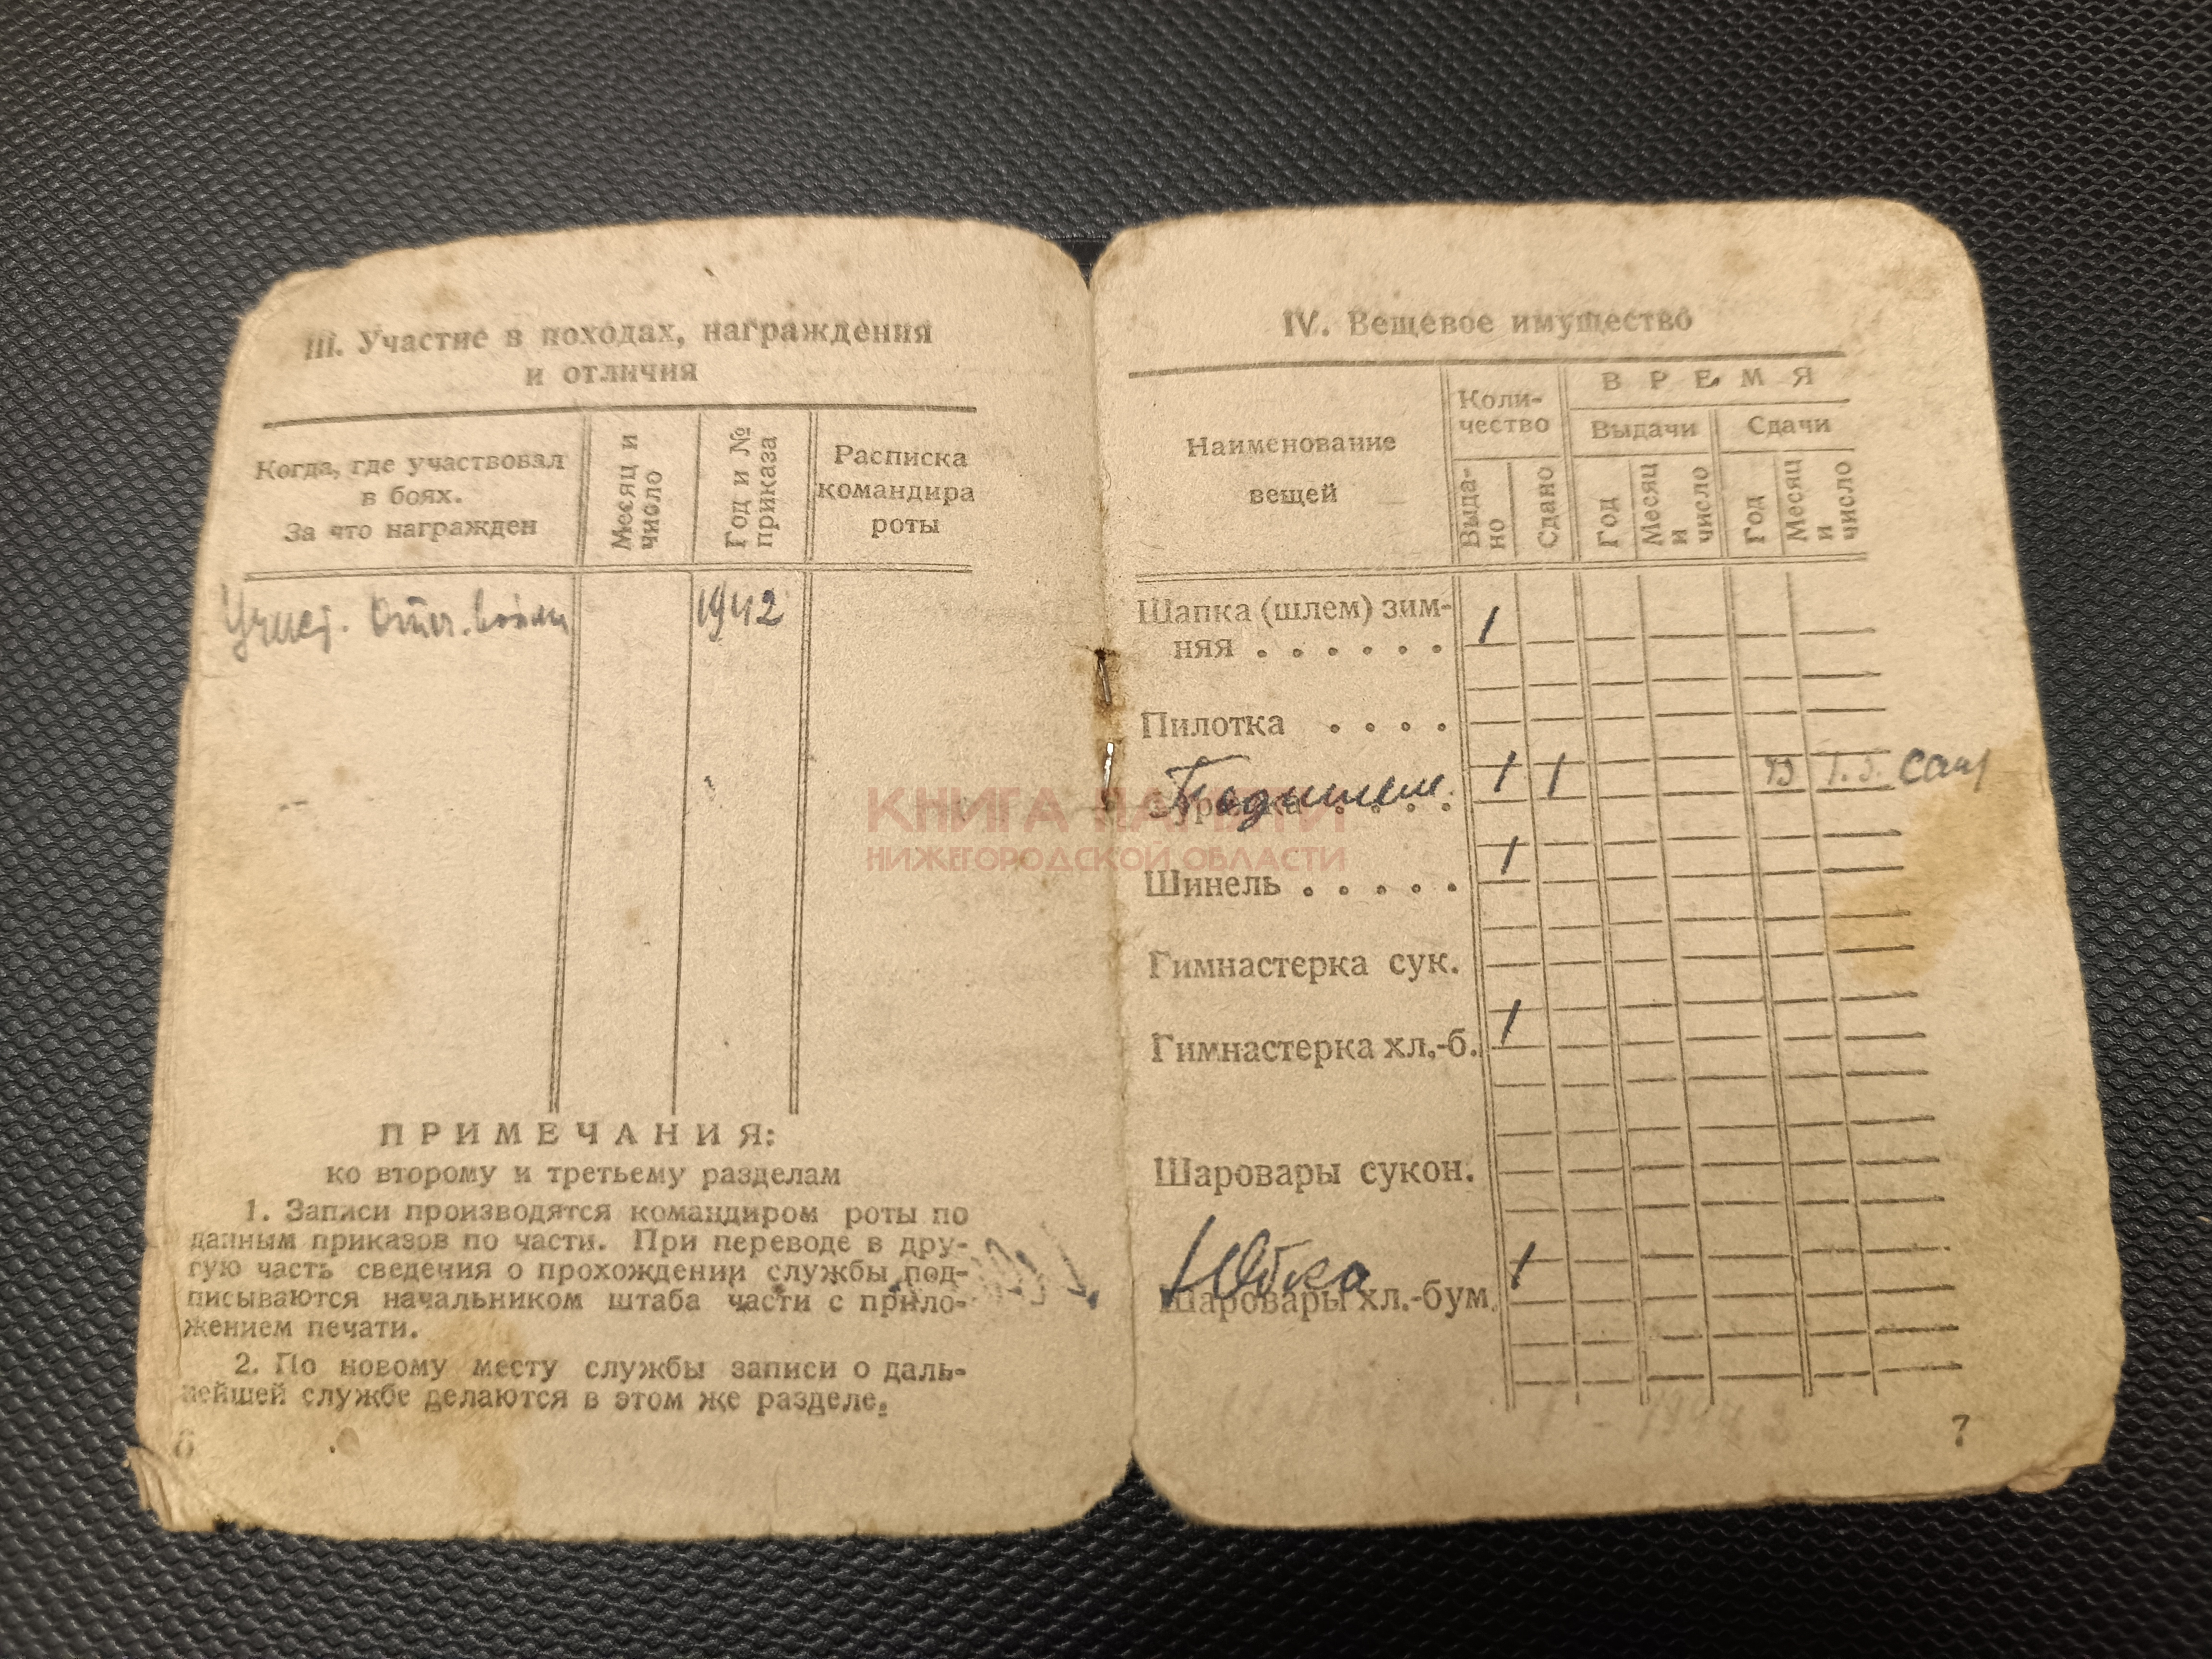 III. Участие в походах, награждения
и отличия
Когда, где участвовал
в боях.
За что награжден
Месяц и
число
Год и №
приказа
Расписка
командира
роты
Участ. Отеч. войны
1942
ПРИМЕЧАНИЯ:
ко второму и третьему разделам
1. Записи производятся командиром роты по
данным приказов по части. При переводе в дру-
гую часть сведения о прохождении службы под-
писываются начальником штаба части с прило-
жением печати.
2. По новому месту службы записи о даль-
нейшей службе делаются в этом же разделе.
6
IV. Вещевое имущество
Наименование
вещей
Коли-
чество
ВРЕМЯ
Выдачи
Сдачи
Выда-
но
Сдано
Год
Месяц
и
число
Год
Месяц
и
число
Шапка (шлем) зим-
няя . . . . . . 1
Пилотка . . . .
Подшлем 1 1
Шинель . . . . . 1
Гимнастерка сук.
Гимнастерка хл.-б. 1
Шаровары сукон.
Юбка 1
Шаровары хл.-бум.
7
КНИГА ПАМЯТИ
НИЖЕГОРОДСКОЙ ОБЛАСТИ